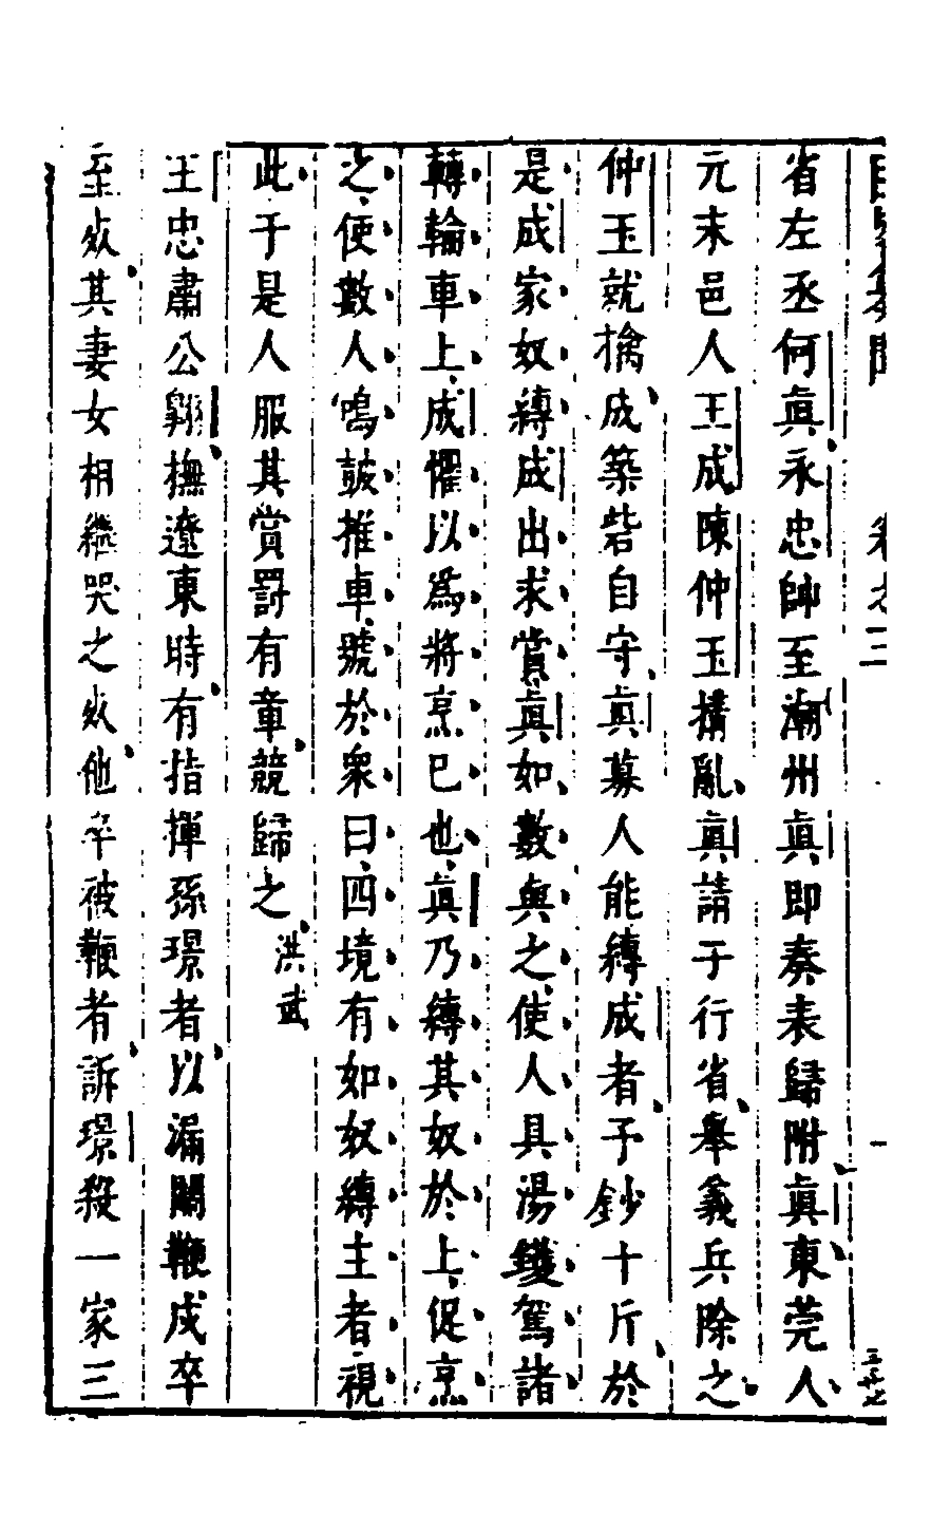 卷之三
省左丞何眞永忠帥至潮州眞即奏表歸附眞東莞人
元末邑人王成陳仲玉搆亂眞請于行省舉義兵除之
仲玉就擒成築砦自守眞募人能縛成者予鈔十斤於
是成家奴縛成出求賞眞如數與之使人具湯鑊駕諸
轉輪車上成懼以爲將烹已也眞乃縛其奴於上促烹
之使數人鳴鼓推車號於衆曰四境有如奴縛主者視
此于是人服其賞罰有章競歸之
洪武
王忠肅公翺撫遼東時有指揮孫璟者以漏關鞭戍卒
至死其妻女相繼哭之死他卒被鞭者訴璟殺一家三